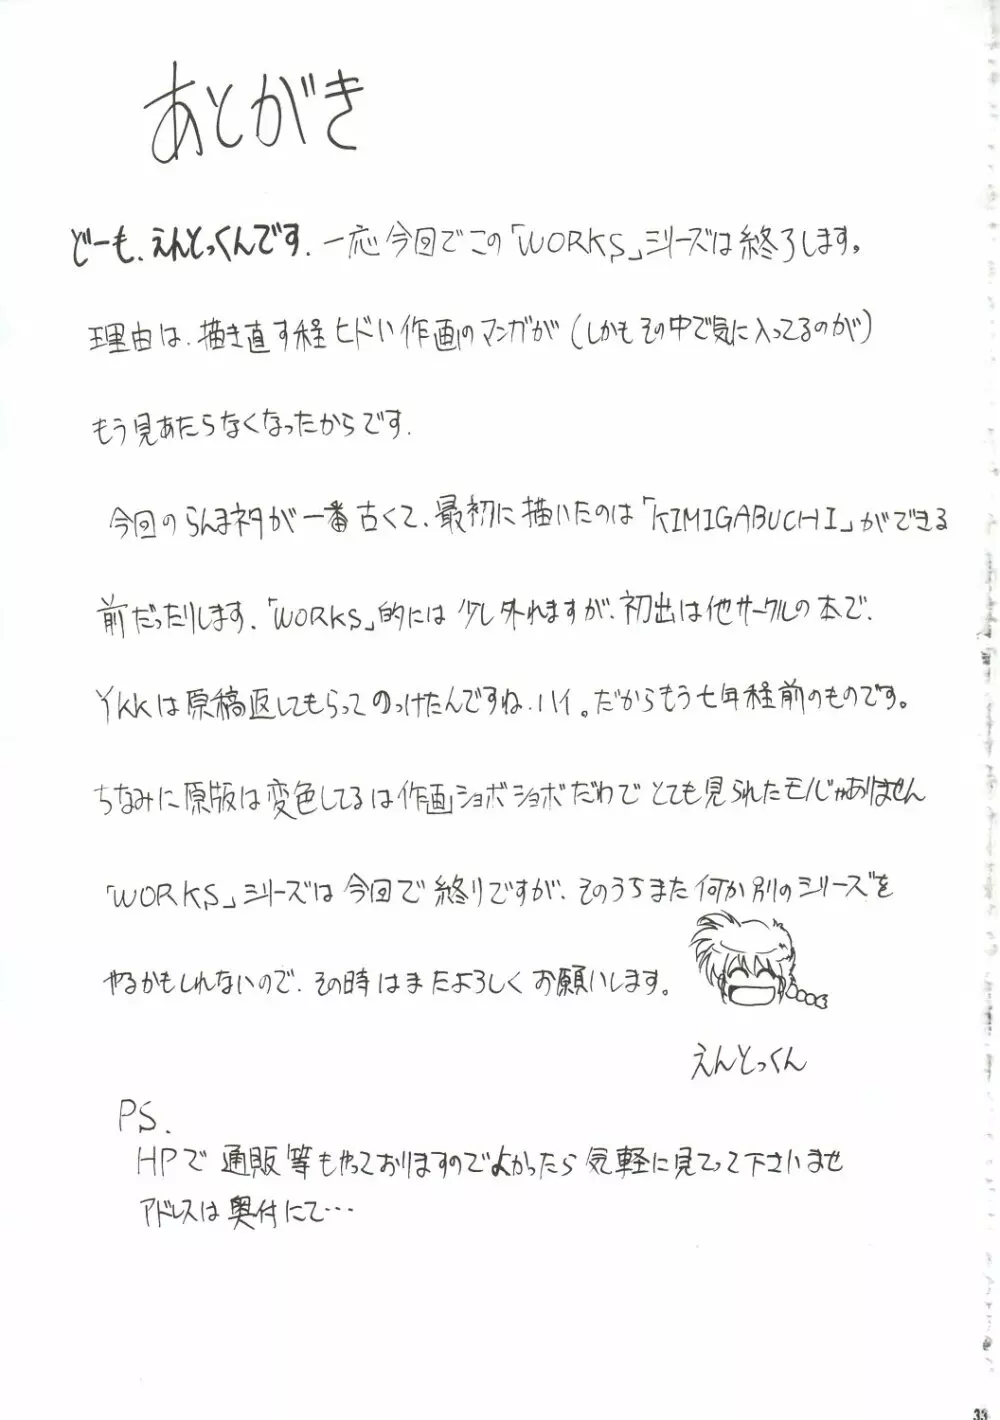 あとがき
どーも、えんとっくんです. 一応今回でこの「WORKS」シリーズは終了します。
理由は、描き直す程ヒドい作画のマンガが(しかもその中で気に入ってるのが)
もう見あたらなくなったからです.
今回のらんまネタが一番古くて、最初に描いたのは「KIMIGABUCHI」ができる
前だったりします.「WORKS」的には少し外れますが、初出は他サークルの本で、
Ykkは原稿返してもらってのっけたんですね、ハイ。だからもう七年程前のものです。
ちなみに原版は変色してるは作画ショボショボだわでとても見られたモノじゃありません
「WORKS」シリーズは今回で終りですが、そのうちまた何か別のシリーズを
やるかもしれないので、その時はまたよろしくお願いします。
えんとっくん
PS.
HPで通販等もやっておりますのでよかったら気軽に見てって下さいませ
アドレスは奥付にて…
33